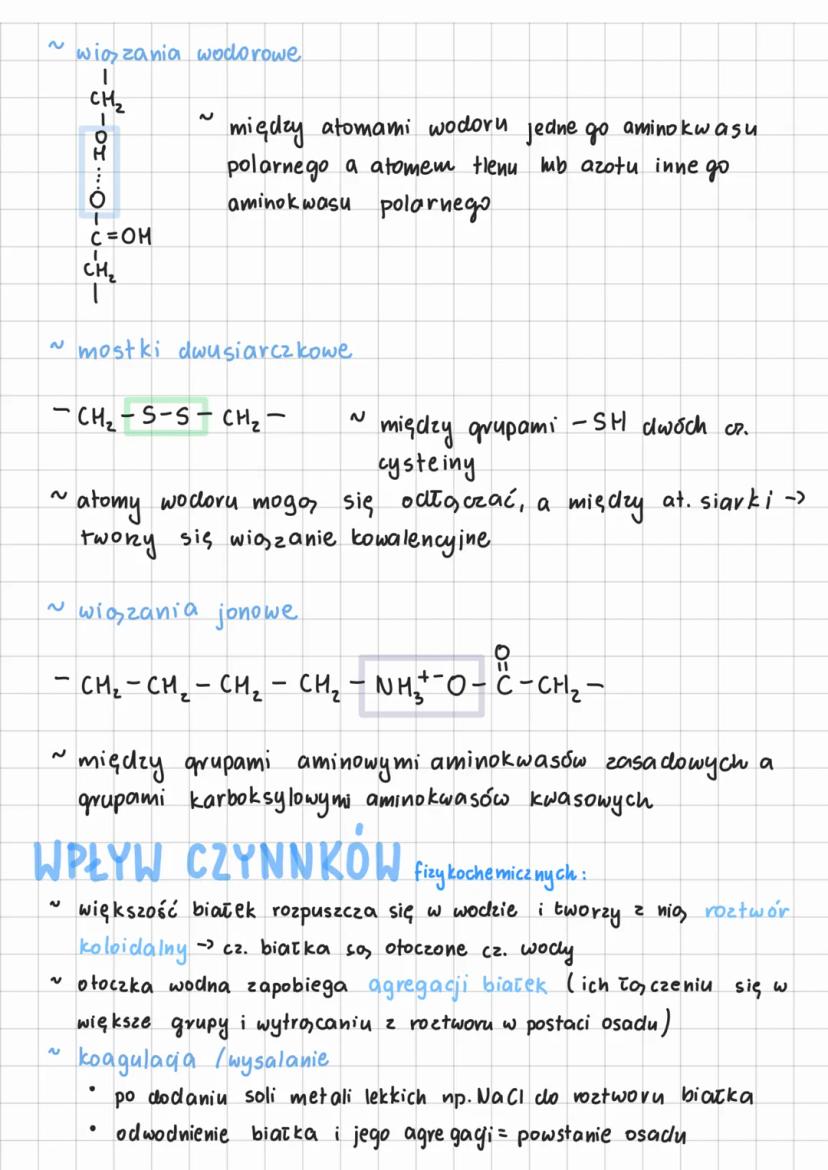 ~ wiązania wodorowe
|
CH₂
|
O
H
⋮
O
|
C=OH
|
CH₂
|
~ między atomami wodoru jednego aminokwasu
polarnego a atomem tlenu lub azotu innego
aminokwasu polarnego
~ mostki dwusiarczkowe
– CH₂ – S – S – CH₂ –
~ między grupami – SH dwóch cz.
cysteiny
~ atomy wodoru mogą się odłączać, a między at. siarki ->
tworzy się wiązanie kowalencyjne
~ wiązania jonowe
O
||
– CH₂ – CH₂ – CH₂ – CH₂ – NH₃⁺ ⁻O – C – CH₂ –
~ między grupami aminowymi aminokwasów zasadowych a
grupami karboksylowymi aminokwasów kwasowych
WPŁYW CZYNNKÓW fizykochemicznych:
~ większość białek rozpuszcza się w wodzie i tworzy z nią roztwór
koloidalny -> cz. białka są otoczone cz. wody
~ otoczka wodna zapobiega agregacji białek (ich łączeniu się w
większe grupy i wytrącaniu z roztworu w postaci osadu)
~ koagulacja / wysalanie
• po dodaniu soli metali lekkich np. NaCl do roztworu białka
• odwodnienie białka i jego agregacji = powstanie osadu